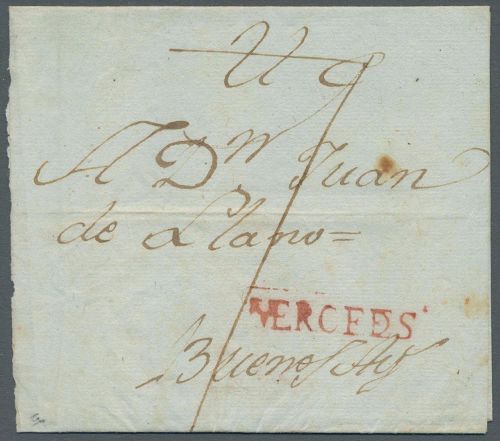 A Dn Juan
de Llano=
MERCEDS
Buenos Ays